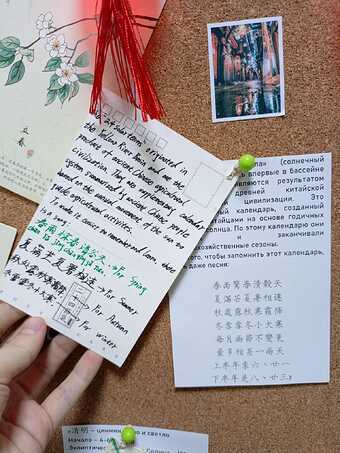 立春
24 Solar terms, originated in
the Yellow River Basin and are the
product of ancient Chinese agricultural
civilization. They are supplementary calendar
system summarized by ancient Chinese people
based on the annual movement of the sun to
guide agricultural activities.
To make it easier to remember them, there
is a song
春雨惊春清谷天 → for Spring
夏满芒夏暑相连 → for Summer
秋处露秋寒霜降 for Autumn
冬雪雪冬小大寒 for Winter
(солнечный
впервые в бассейне
результатом
древней китайской
цивилизации. Это
календарь, созданный
на основе годичных
По этому календарю они
и заканчивали
сезоны.
чтобы запомнить этот календарь,
даже песня:
春雨驚春清穀天
夏滿芒夏暑相連
秋處露秋寒霜降
冬雪雪冬小大寒
每月兩節不變更
最多相差一兩天
上半年來六、廿一
下半年是八、廿三
«清明 - и светло
Начало - 4-6